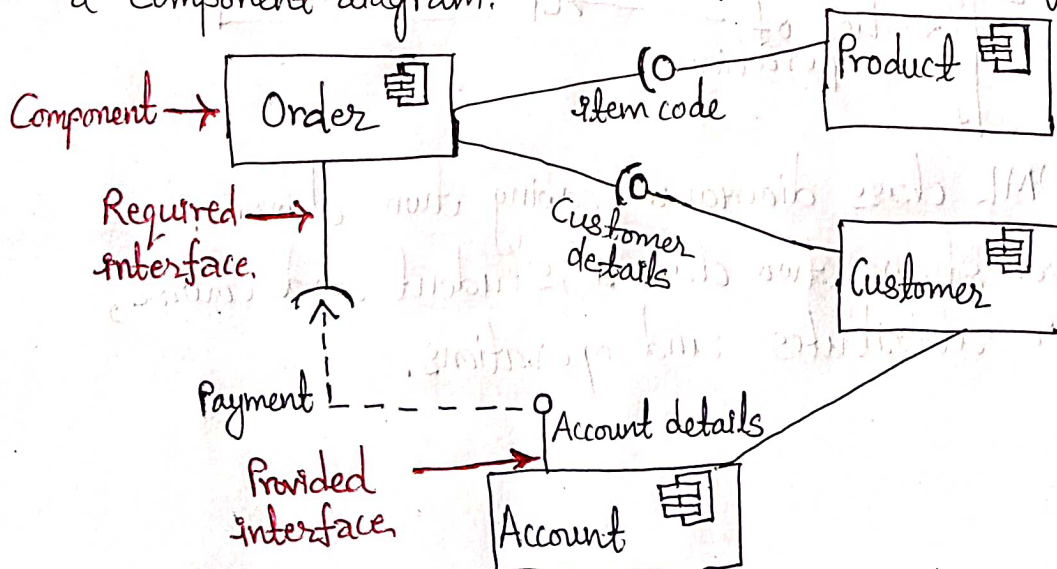 a component diagram.
Product
Component
Order
item code
Required
interface.
Customer
details
Customer
Payment
Account details
Provided
interface
Account